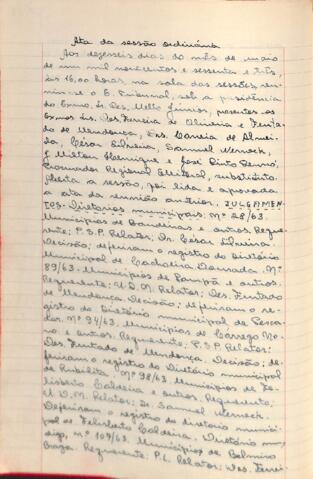 Ata da sessão ordinária
Aos dezesseis dias do mês de maio
de um mil novecentos e sessenta e três,
às 16,00 horas, na sala das sessões, reu-
niu-se o E. Tribunal, sob a presidência
do Exmo. Sr. Des. Mello Júnior, presentes os
Exmos. Srs. Des. Ferreira de Oliveira e Furta-
do de Mendonça, Drs. Correia de Almei-
da, César Silveira, Samuel Werneck,
J. Milton Henrique e José Pinto
Procurador Regional Eleitoral, substituto.
Aberta a sessão, foi lida e aprovada
a ata da reunião anterior. JULGAMEN-
TOS. Diretórios municipais. Nº 28/63.
Municípios de Bandeiras e outros. Reque-
rente; P.S.P. Relator; Dr. César Silveira.
Decisão; deferiram o registro do Diretório
Municipal de Cachoeira Dourada. Nº
89/63. Municípios de Pampã e outros.
Requerente; U.D.N. Relator; Des. Furtado
de Mendonça. Decisão; deferiram o re-
gistro do Diretório municipal de Pesca-
dor. Nº 94/63. Municípios de Carrego No-
vo e outros. Requerente; P.S.P. Relator;
Des. Furtado de Mendonça. Decisão; de-
feriram o registro do Diretório municipal
de Rubelita. Nº 98/63. Municípios de Fe-
lisberto Caldeira e outros. Requerente;
U.D.N. Relator; Dr. Samuel Werneck.
Deferiram o registro do diretório munici-
pal de Felisberto Caldeira. Diretório mu-
nicip. nº 104/63. Município de Belmiro
Braga. Requerente; P.L. Relator; Des. Ferrei-